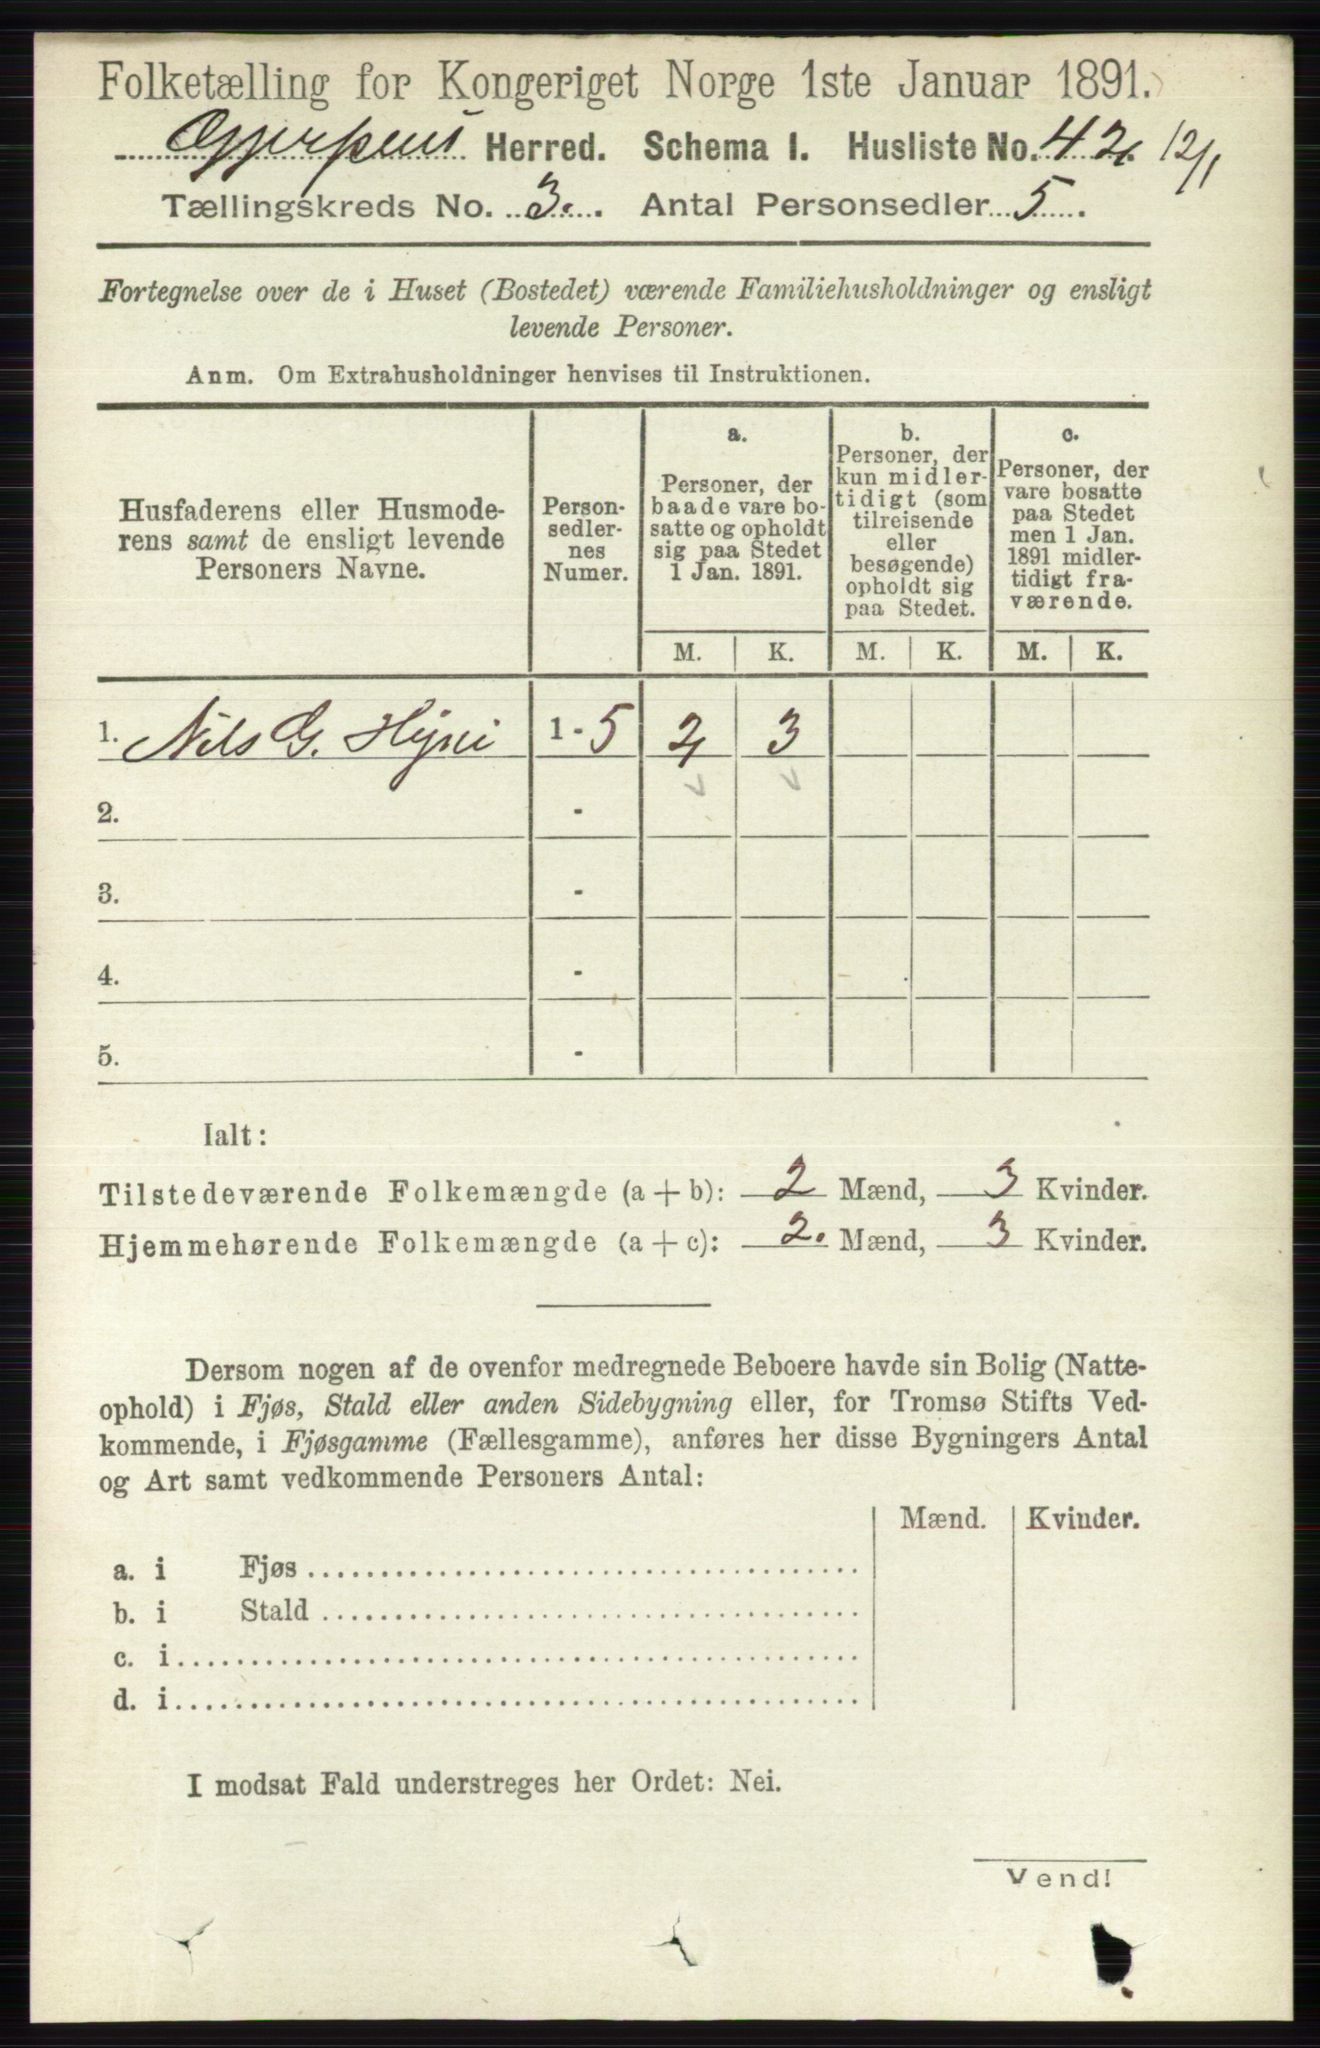 Folketælling for Kongeriget Norge 1ste Januar 1891.
Gjerpens Herred. Schema I. Husliste No. 42. 12/1
Tællingskreds No. 3. Antal Personsedler 5.
Fortegnelse over de i Huset (Bostedet) værende Familiehusholdninger og ensligt
levende Personer.
Anm. Om Extrahusholdninger henvises til Instruktionen.
Husfaderens eller Husmode-
rens samt de ensligt levende
Personers Navne.
Person-
sedler-
nes
Numer.
a.
Personer, der
baade vare bo-
satte og opholdt
sig paa Stedet
1 Jan. 1891.
b.
Personer, der
kun midler-
tidigt (som
tilreisende
eller
besøgende)
opholdt sig
paa Stedet.
c.
Personer, der
vare bosatte
paa Stedet
men 1 Jan.
1891 midler-
tidigt fra-
værende.
M. K. M. K. M. K.
1. Nils G. 1-5 2 3
2. -
3. -
4. -
5. -
Ialt:
Tilstedeværende Folkemængde (a + b): 2 Mænd, 3 Kvinder.
Hjemmehørende Folkemængde (a + c): 2. Mænd, 3 Kvinder.
Dersom nogen af de ovenfor medregnede Beboere havde sin Bolig (Natte-
ophold) i Fjøs, Stald eller anden Sidebygning eller, for Tromsø Stifts Ved-
kommende, i Fjøsgamme (Fællesgamme), anføres her disse Bygningers Antal
og Art samt vedkommende Personers Antal:
Mænd. Kvinder.
a. i Fjøs
b. i Stald
c. i
d. i
I modsat Fald understreges her Ordet: Nei.
Vend!